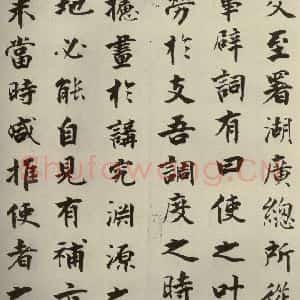 至署湖廣總所從
辟詞有曰使之叶
勞於支吾調度之時
攄畫於講究淵源之
地必能自見有補亦
未當時咸推使者之
shufawang.cn